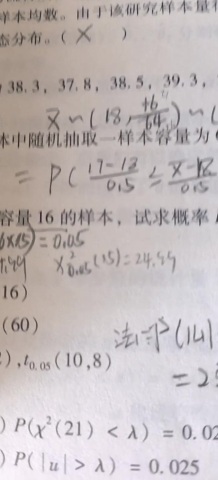 样本均数。由于该研究样本量
态分布。( × )
38.3, 37.8, 38.5, 39.3,
x̄ ~ (18, 16/64) ~ (
本中随机抽取一样本容量为
= P( (17-18)/0.5 ≤ (x̄-18)/0.5
容量 16 的样本，试求概率
6×15) = 0.05
4.99 χ²₀.₀₅(15) = 24.99
16)
(60)
法二: P(|4|
), t₀.₀₅(10,8)
= 2
) P(χ²(21) < λ) = 0.02
) P(|u| > λ) = 0.025